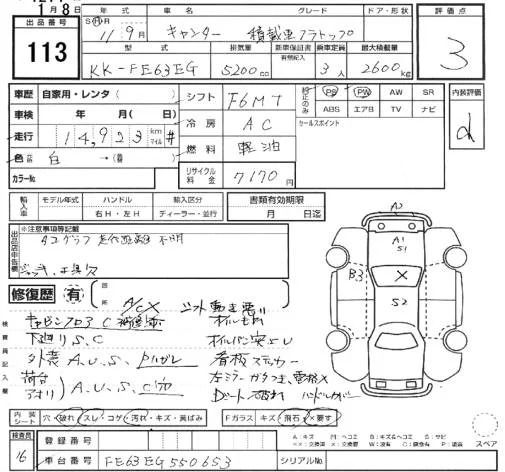 1月8日
年式 車名 グレード ドア・形状 評価点
出品番号 S H R 11年9月 キャンター 積載車フラトップ 3
113
型式 排気量 新車保証書 乗車定員 最大積載量
有無記入
KK-FE63EG 5200cc 3人 2600kg
車歴 自家用・レンタ( ) シフト F6MT 純正のみ PS PW AW SR 内装評価
ABS エアB TV ナビ
車検 年 月( 日) 冷房 AC セールスポイント d
走行 14,923 km マイル #
燃料 軽油
色 白 →( )
カラーNo. リサイクル料金 7170円
輸入車 モデル年式 ハンドル 輸入区分 書類有効期限
年 右H・左H ディーラー・並行 月 日迄
出品店申告欄 ※注意事項等記載
タコグラフ 走行距離 不明
ジャッキ、工具欠
修復歴 有 箇所
A/C X シフト動き悪い
検査員記入欄
キャビンフロア C 補修跡 オイルモレ
下廻り S、C オイルパン突S U
外装 A、U、S、Pハガレ 看板ステッカー
荷台
アオリ A、U、S、C穴 左ミラーガタつき、電格X
シート破れ ハンドルカバー
A2
A1
S1
B3 X
S2
内装シート 穴・破れ・スレ・コゲ・汚れ・キズ・黄ばみ Fガラス キズ・飛石・X要す
A:キズ M:ヘコミ B:キズ&ヘコミ S:サビ
スペア
検査員 16
登録番号
車台番号 FE63EG550653 シリアルNo.